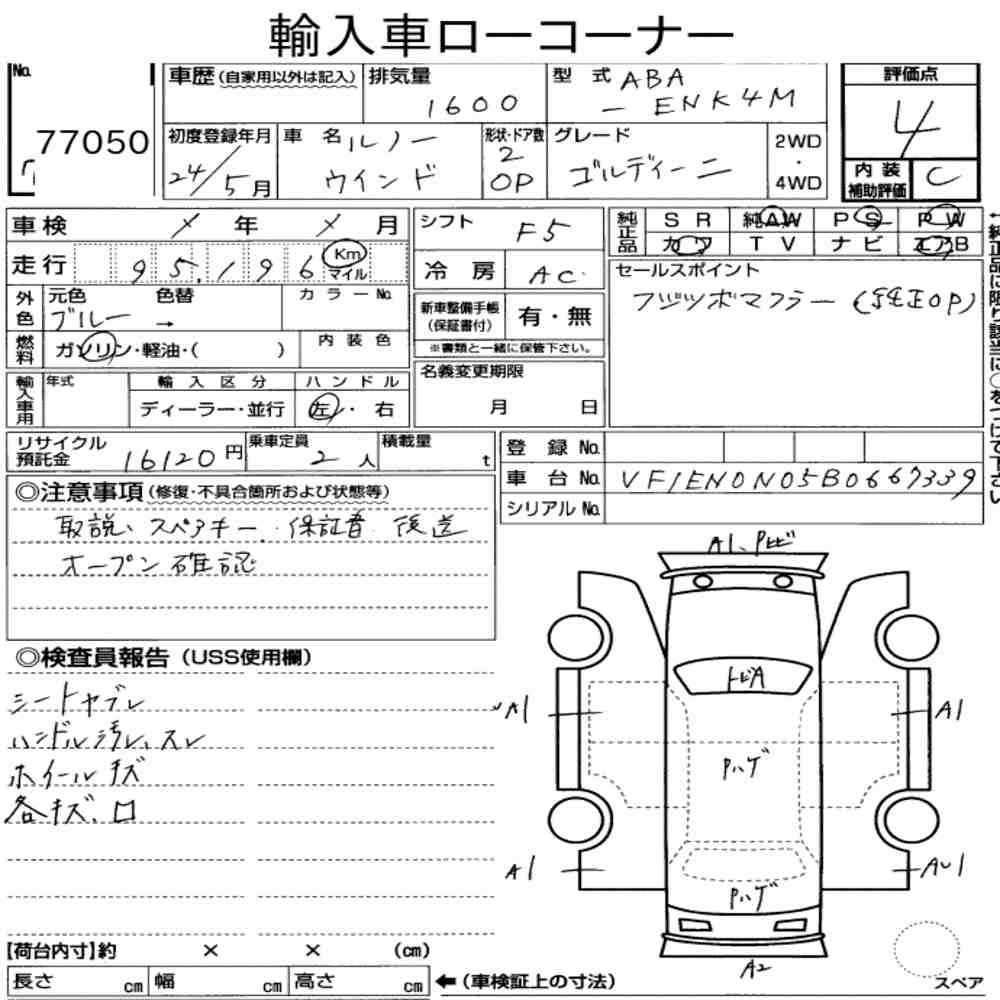 輸入車ローコーナー
No.
77050
車歴(自家用以外は記入)
排気量
1600
型式 ABA
- ENK4M
評価点
4
初度登録年月
24/5月
車名 ルノー
ウインド
形状・ドア数
2
OP
グレード
ゴルディーニ
2WD
・
4WD
内装
補助評価
C
車検 / 年 / 月
走行 95,196 Km
マイル
シフト F5
冷房 AC
純正品 SR 純AW PS PW
カワ TV ナビ エアB
外色 元色 色替 カラーNo.
ブルー →
新車整備手帳
(保証書付)
有・無
※書類と一緒に保管下さい。
セールスポイント
フジツボマフラー(純正OP)
燃料 ガソリン・軽油・( )
内装色
名義変更期限
月 日
輸入車用 年式 輸入区分 ハンドル
ディーラー・並行 左・右
←純正品に限り該当に○をつけて下さい
リサイクル
預託金 16120円
乗車定員
2人
積載量
t
登録No.
車台No. VF1EN0N05B0667339
シリアルNo.
◎注意事項(修復・不具合箇所および状態等)
取説、スペアキー、保証書 後送
オープン確認
◎検査員報告(USS使用欄)
シートヤブレ
ハンドル汚レ、スレ
ホイールキズ
各キズ、口
A1、Pトビ
トビA
A1
A1
Pハゲ
A1
AU1
Pハゲ
A2
スペア
【荷台内寸】約 × × (cm)
長さ cm 幅 cm 高さ cm ←(車検証上の寸法)